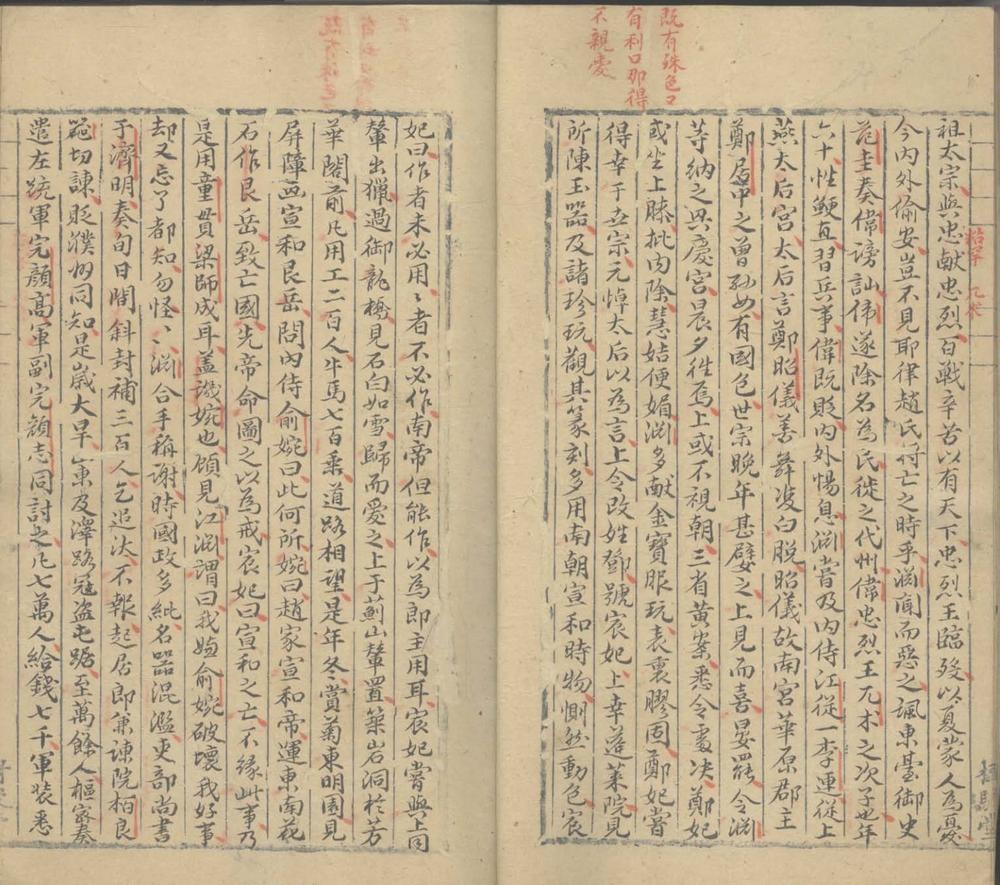 既有殊色又
有利口那得
不親愛
祖太宗與忠献忠烈百戰辛苦以有天下忠烈王臨歿以夏蒙人為憂
今内外偷安豈不見耶律趙氏將亡之時乎溵聞而惡之諷東臺御史
范圭奏偉謗訕偉遂除名為民徙之代州偉忠烈王兀术之次子也年
六十性鯁直習兵事偉既貶内外惕息溵嘗及内侍江從一李連從上
燕太后宮太后言鄭昭儀善舞凌白脱昭儀故南宮華原郡王
鄭居中之曾孫女有國色世宗晚年甚嬖之上見而喜晏罷令溵
等納之興慶宮晨夕徃焉上或不視朝三省黄案悉令處决鄭妃
或坐上膝批内除慧姑便媚溵多献金寶服玩表裏膠固鄭妃嘗
得幸于世宗元悼太后以為言上令改姓鄧號宸妃上幸蓬莱院見
所陳玉器及諸珍玩觀其篆刻多用南朝宣和時物惻然動色宸
妃曰作者未必用〻者不必作南帝但能作以為郎主用耳宸妃嘗與上同
輦出獵過御龍橋見石白如雪歸而愛之上于薊山輦置築岩洞於芳
華閣前凡用工二百人牛馬七百乘道路相望是年冬賞菊東明園見
屏障画宣和艮岳問内侍俞婉曰此何所婉曰趙家宣和帝運東南花
石作艮岳致亡國先帝命圖之以為戒宸妃曰宣和之亡不縁此事乃
是用童貫梁師成耳盖譏婉也頋見江溵謂曰我嫗俞婉破壞我好事
却又忘了都知勿怪〻溵合手稱謝時國政多紕名器混濫吏部尚書
于濟明奏旬日間斜封補三百人乞追汰不報起居郎兼諫院柏良
切諫貶濮州同知是歲大旱山東及澤路冦盗屯踞至萬餘人樞密奏
遣左統軍完顔高軍副完顔志同討之凡七萬人給錢七千軍装悉